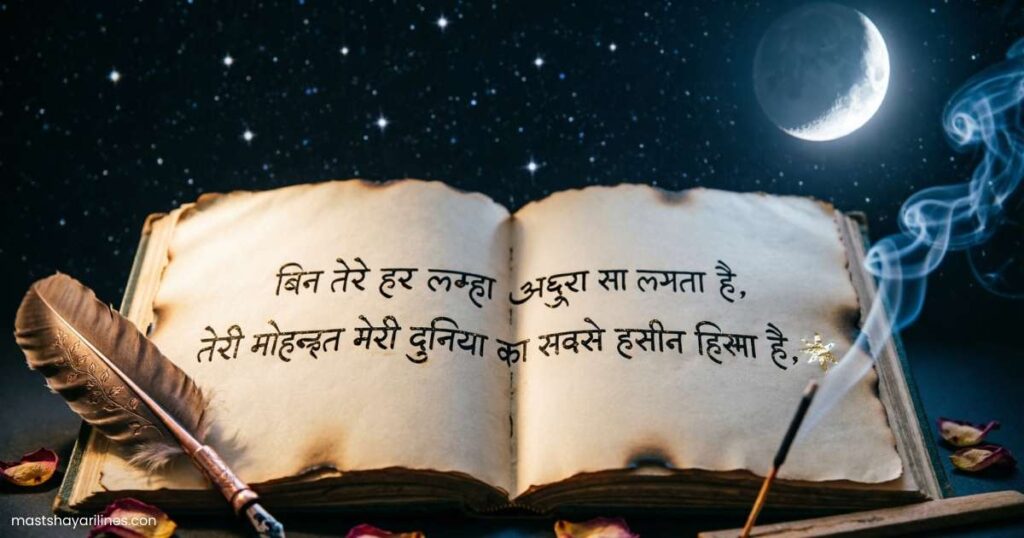 बिन तेरे हर लम्हा अधुरा सा लगता है,
तेरी मोहन्इत मेरी दुनिया का सबसे हसीन हिस्मा है,
mastshayarilines.con